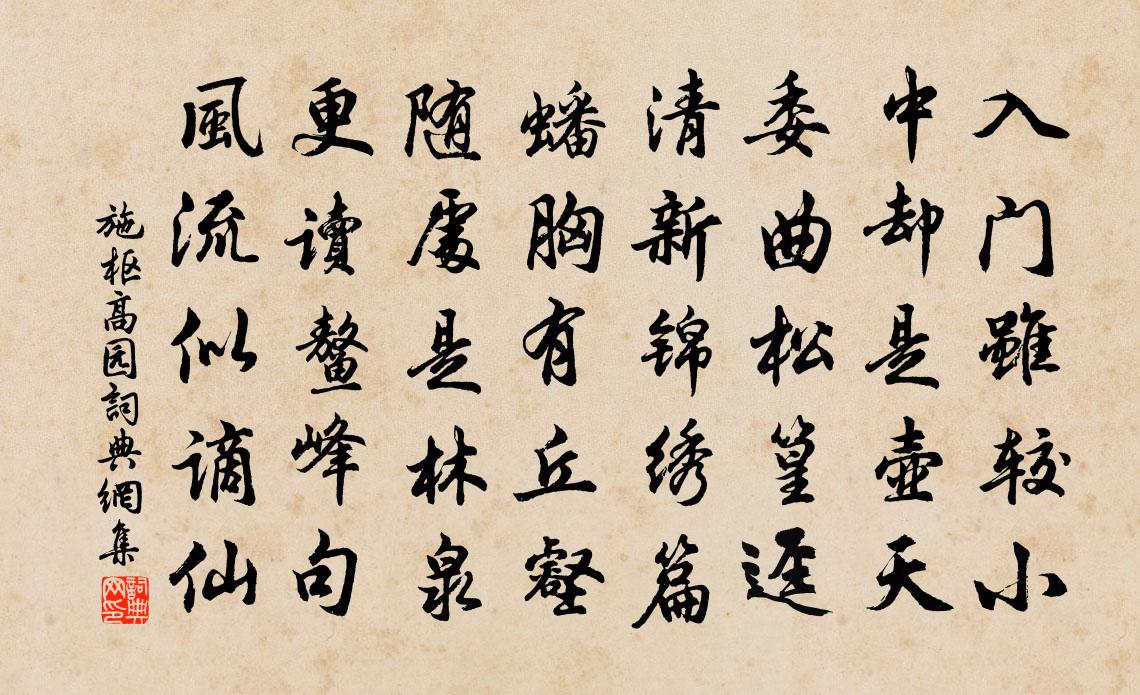 入门雖较小
中却是壺天
委曲松篁迳
清新锦绣篇
蟠胸有丘壑
随處是林泉
更读鳌峰句
風流似谪仙
施枢高园詞典網集
詞典网印